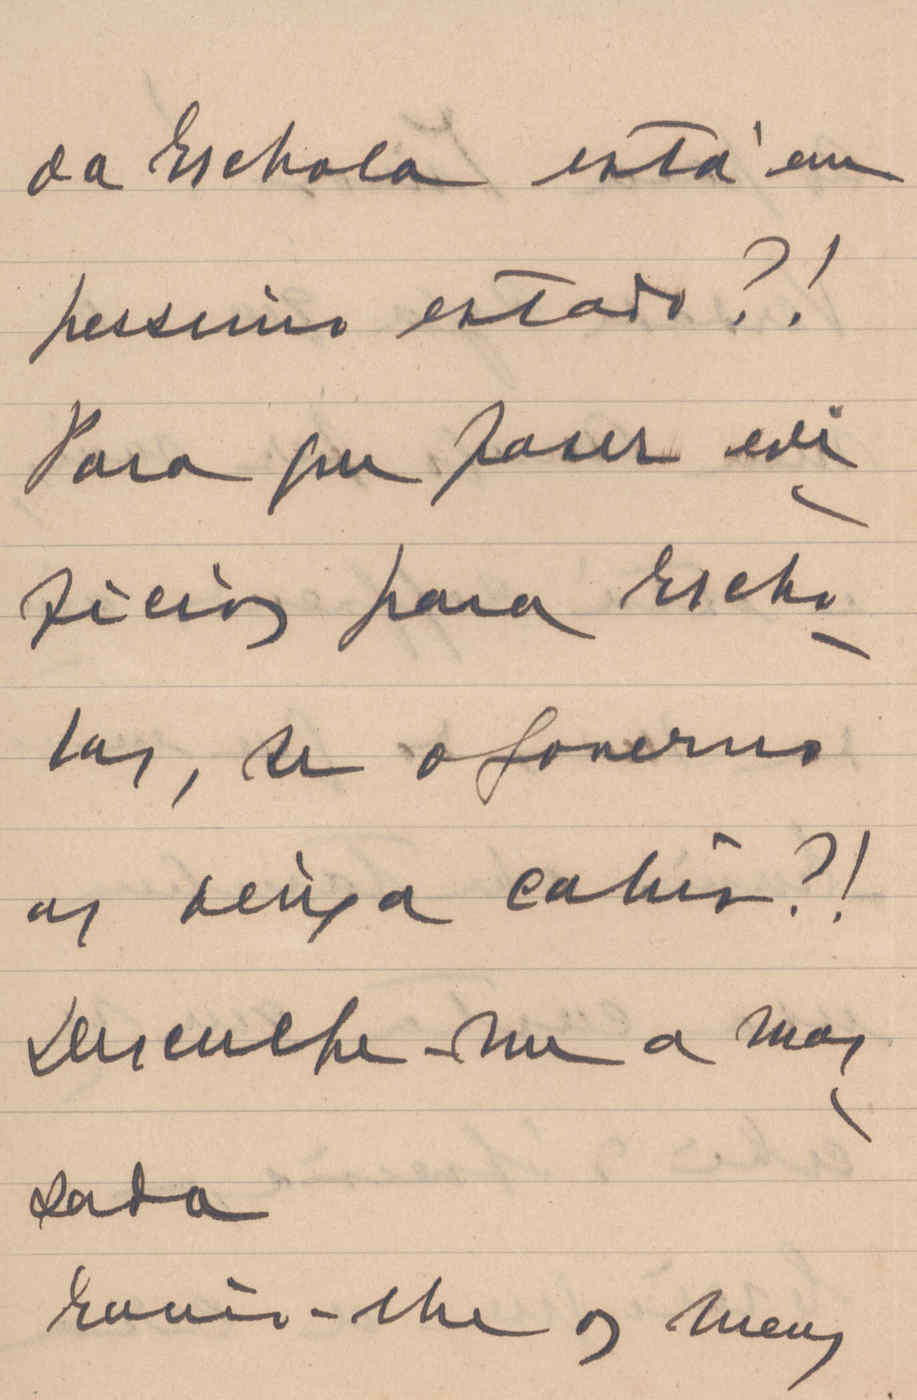 da Eschola está em
pessimo estado?!
Para que fazer edi-
ficios para Escho-
las, se o Governo
as deixa cahir?!
Desculpe-me a mas-
sada
Envio-lhe os meus